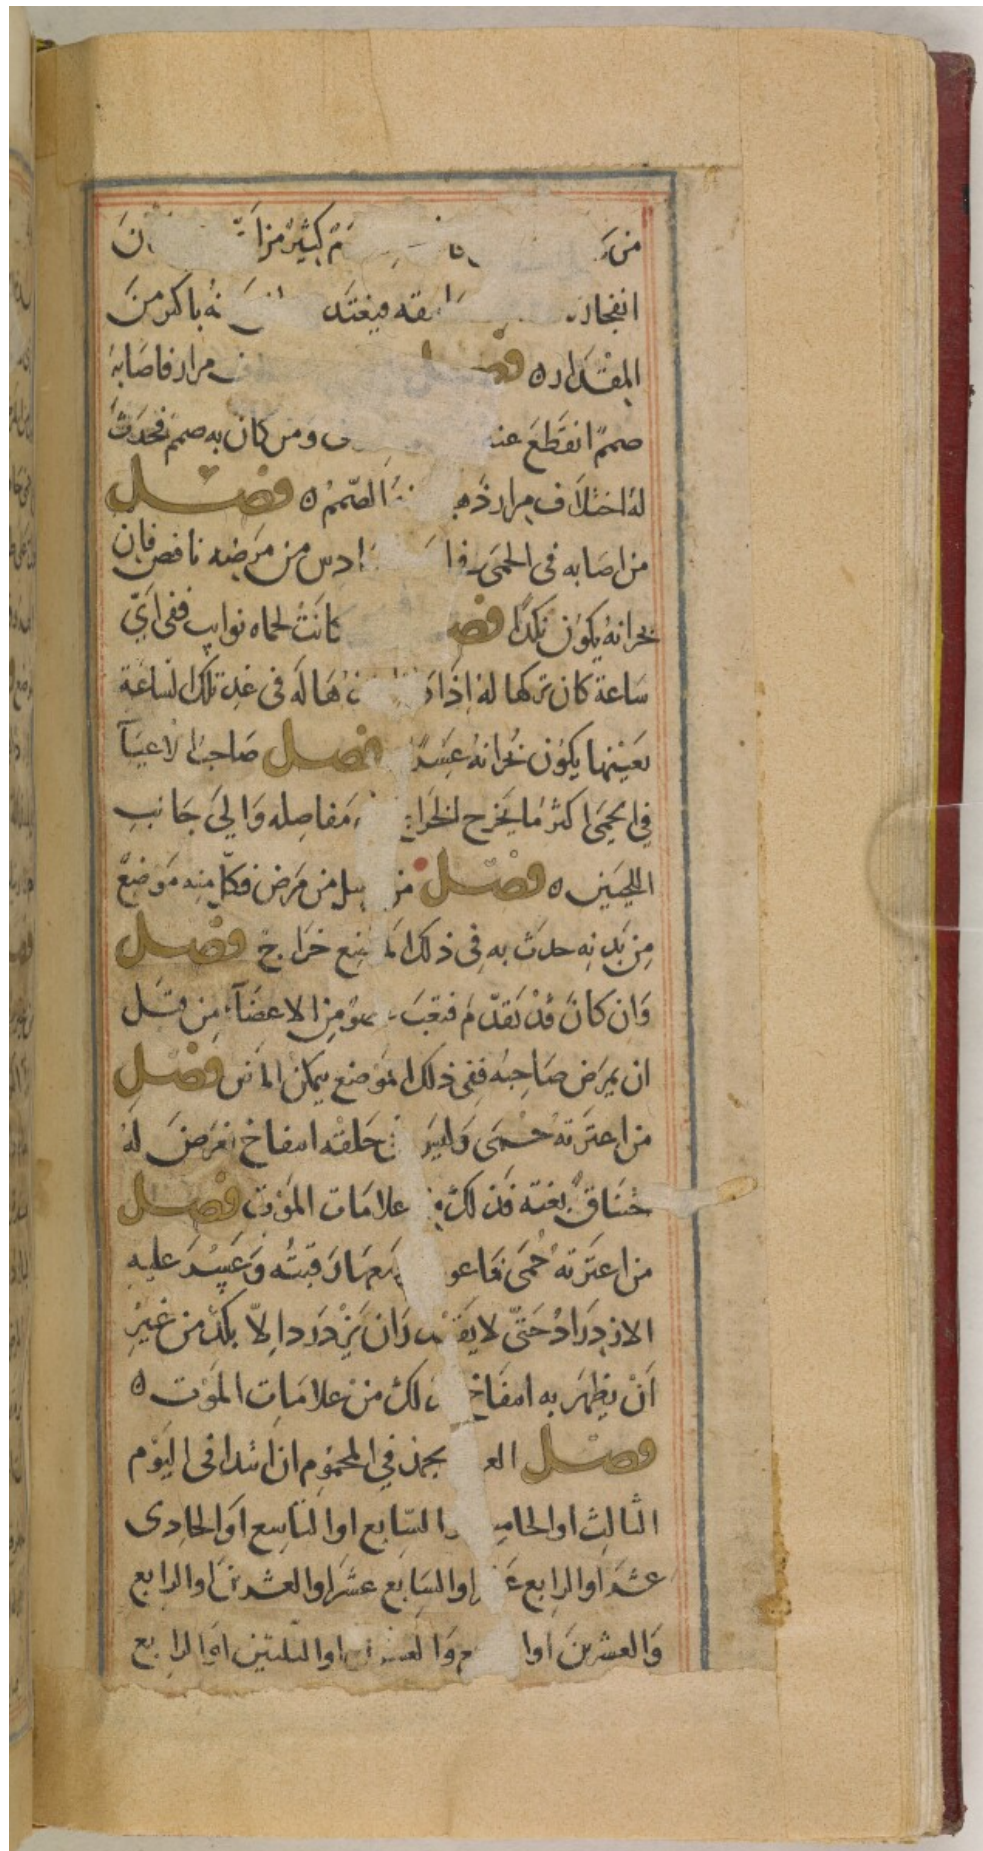 من كثير من
انفجار فيغتذ باكثر من
المقدار ه فصل مرار فاصابه
صمم انقطع عنه ومن كان به صمم فحدث
له اختلاف مرار ذهب الصمم ه فصل
من اصابه في الحمى في ادس من مرضه نافض فان
بحرانه يكون نكدا فصل كانت لحماه نوايب ففي اي
ساعة كان تركها له اذا ها له في غد تلك الساعة
بعينها يكون بحرانه عسرا فصل صاحب الاعيآ
في الحمى اكثر ما يخرج الخراج مفاصله والى جانب
اللحيين ه فصل من يبل من مرض فكل منه موضع
من بدنه حدث به في ذلك الموضع خراج فصل
وان كان قد تقدم فتعب عضو من الاعضآ من قبل
ان يمرض صاحبه ففي ذلك الموضع يتمكن المرض فصل
من اعترته حمى وليس في حلقه انتفاخ فعرض له
خناق بغتة فذلك من علامات الموت فصل
من اعترته حمى فاعو معها رقبته وعسر عليه
الازدراد حتى لا يقدر ان يزدرد الا بكد من غير
ان يظهر به انتفاخ ذلك من علامات الموت ه
فصل العرق يحمد في المحموم ان ابتدا في اليوم
الثالث او الخامس او السابع او التاسع او الحادى
عشر او الرابع عشر او السابع عشر او العشرين او الرابع
والعشرين او والعشرين او الثلثين او الرابع